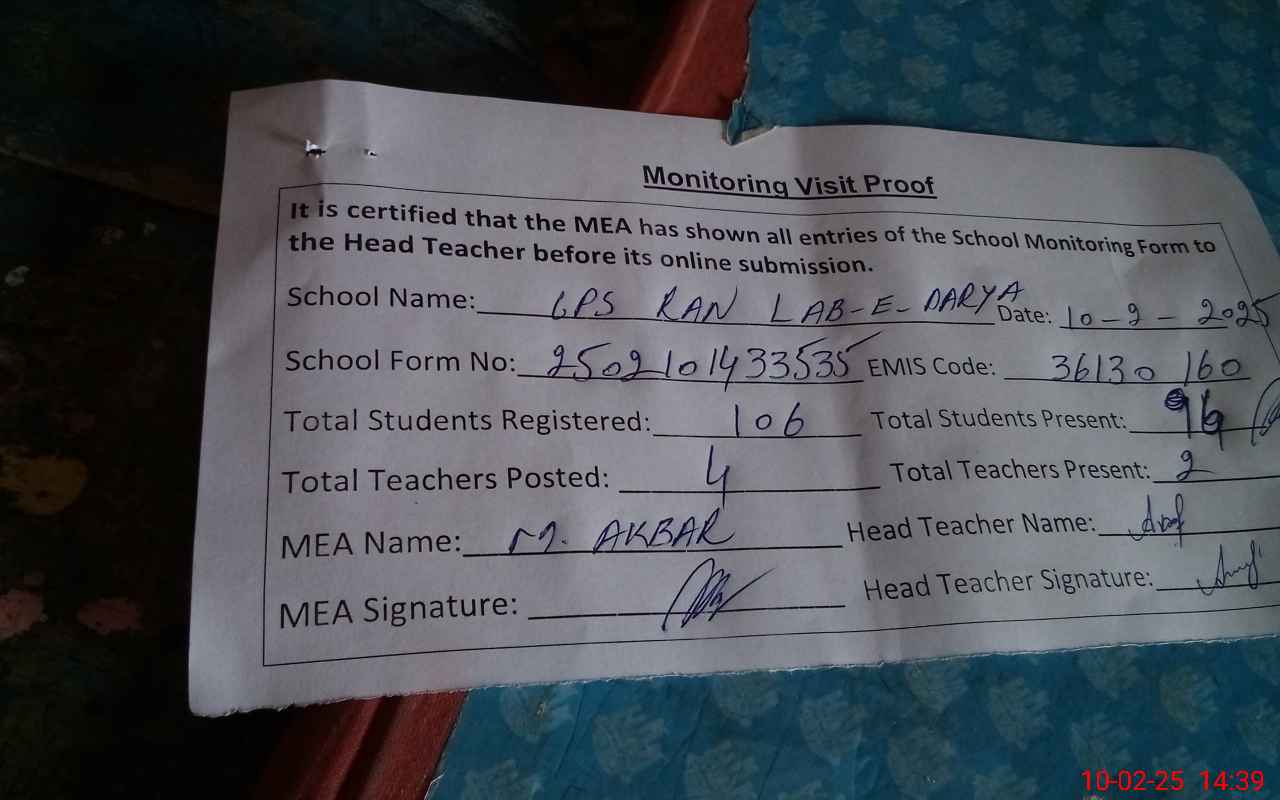 Monitoring Visit Proof
It is certified that the MEA has shown all entries of the School Monitoring Form to
the Head Teacher before its online submission.
School Name: GPS RAN LAB-E-DARYA Date: 10-2-2025
School Form No: 2502101433535 EMIS Code: 36130160
Total Students Registered: 106 Total Students Present:
Total Teachers Posted: 4 Total Teachers Present: 2
MEA Name: M. AKBAR Head Teacher Name:
MEA Signature: Head Teacher Signature:
10-02-25 14:39